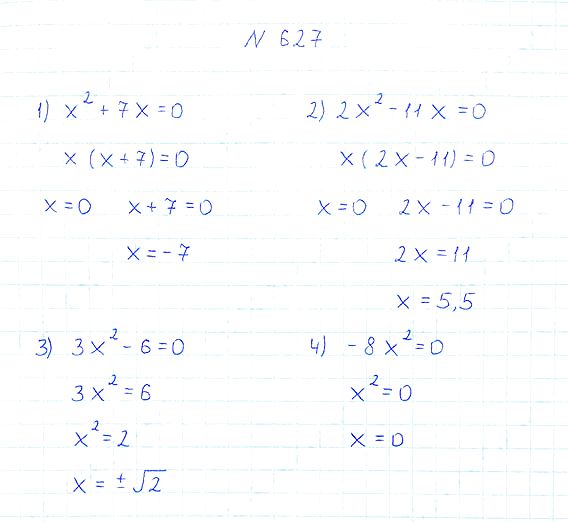 N 627
1) x² + 7x = 0
x (x + 7) = 0
x = 0 x + 7 = 0
x = - 7
2) 2x² - 11x = 0
x (2x - 11) = 0
x = 0 2x - 11 = 0
2x = 11
x = 5,5
3) 3x² - 6 = 0
3x² = 6
x² = 2
x = ± √2
4) - 8x² = 0
x² = 0
x = 0